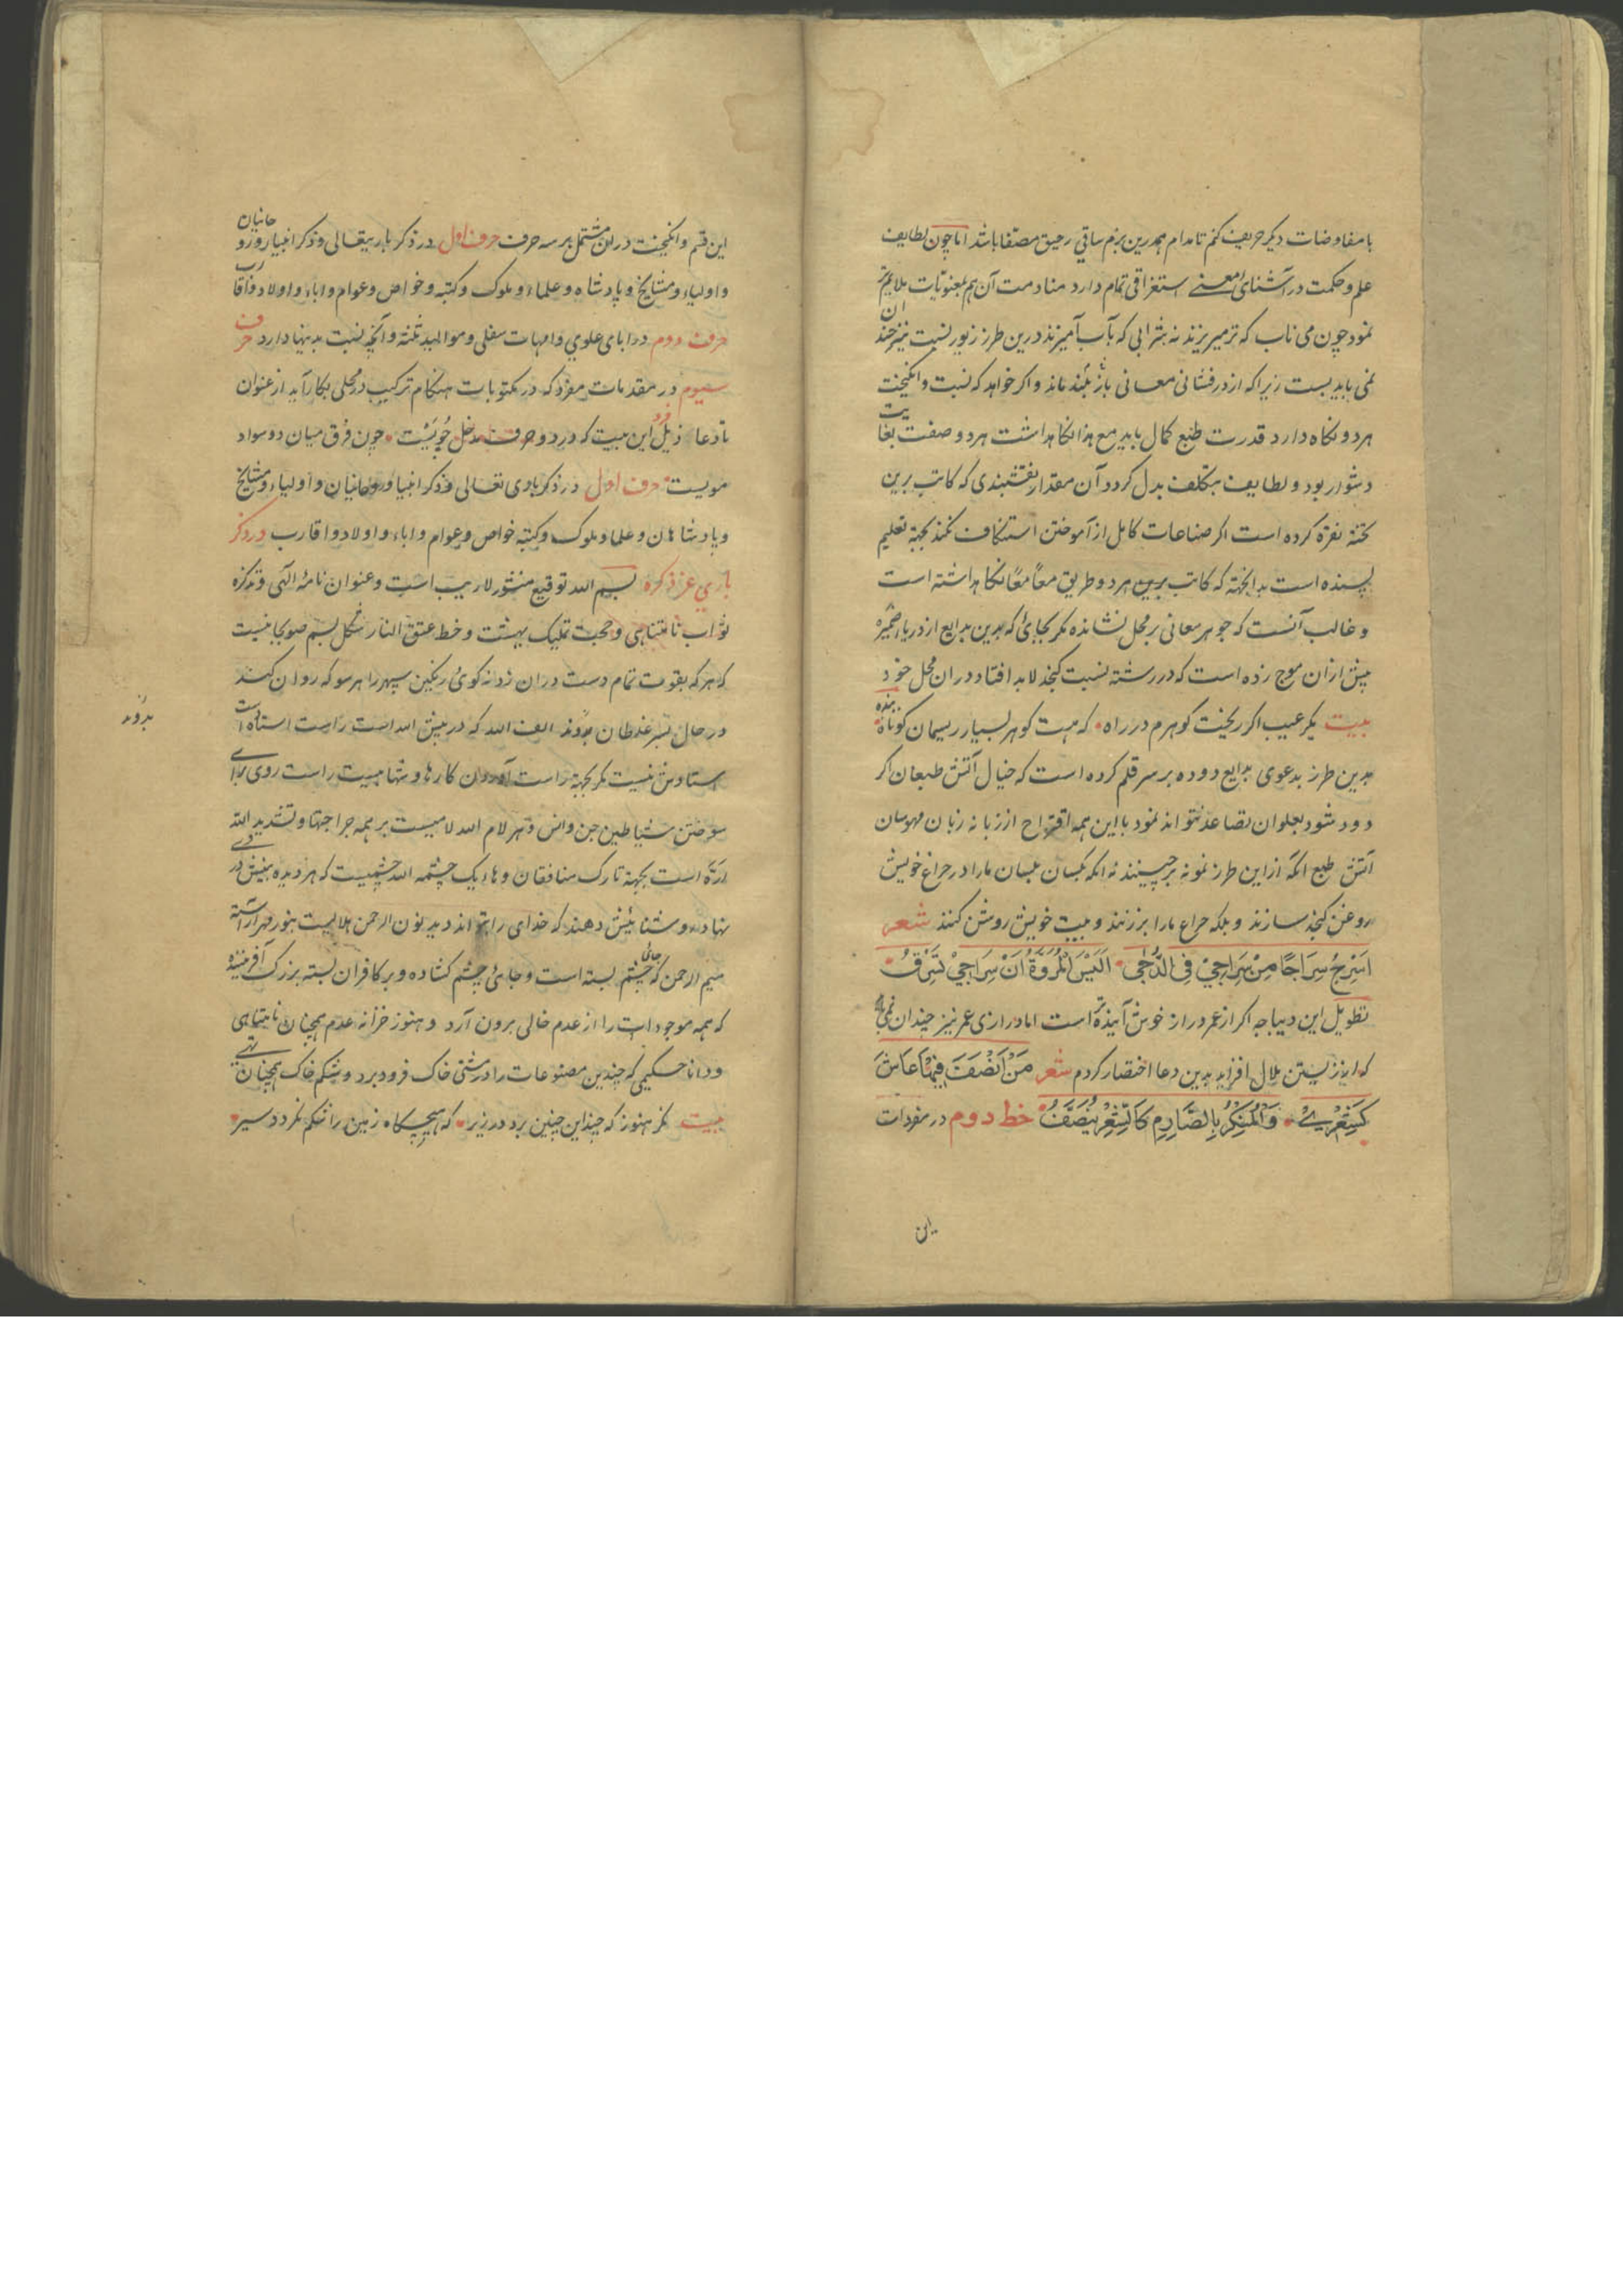 با مفاوضات دیکر حریف کنم تا مدام همدرین بزم ساقی رحیق مصفا باشد اما چون لطایف
علم و حکمت در آشنای معنے استغراقی تمام دارد منادمت آن هم بمعنویات ملایم تر
نمود چون می ناب که تر میریزند نه شرابی که بآب آمیزند درین طرز زیور نسبت نیز چندان
نمی باید بست زیرا که از درفشانی معانی باز بلند ماند و اکر خواهد که نسبت و انکیخت
هر دو نکاه دارد قدرت طبع کمال باید مع هذا نکاهداشت هر دو صفت بغایت
دشوار بود و لطایف بتکلف بدل کردد آن مقدار نقشبندی که کاتب برین
تخته نقره کرده است اکر صناعات کامل از آموختن استنکاف نکند بجهة تعلیم
پسنده است بدانخته که کاتب برین هر دو طریق معاً معاً نکاهداشته است
و غالب آنست که جوهر معانی بر محل نشانده مکر بجائی که بدین بدایع از دریا ضمیره
پیش ازان موج زده است که در رشته نسبت کنجد لابد افتاد دران محل خود
بیت مکیر عیب اکر ریخت کوهرم در راه که هست کوهر بسیار ریسمان کوتاه بنده
بدین طرز بدعوی بدایع دوده بر سر قلم کرده است که خیال آتش طبعان اکر
دود شود بعلو ان تصاعد نتواند نمود با این همه اقتراح از زبانه زبان مهوسان
آتش طبع آنکه از این طرز نمونه برچینند نه انکه بکسان بلسان ما را در چراغ خویش
روغن کنجد سازند و بلکه چراغ ما را بر زنند و بیت خویش روشن کنند شعر
اَسْرِجُ سِرَاجًا مِنْ سِرَاجِيْ فِی الدُّجٰی اَلَیْسَ الْمُرُوَّةُ اَنَّ سِرَاجِيْ تَسْرِقُ
تطویل این دیباجه اکر از عمر دراز خوش آینده تر است اما درازی عمر نیز چندان نمی باید
که از زیستن ملال افزاید بدین دعا اختصار کردم شعر مَنْ اَنْصَفَ فِیْمَا عَاشَ
کَشِعْرِيْ وَالْمُنْکِرُ بِالصَّارِمِ کَالشِّعْرِ یُنَصَّفُ خط دوم در مفردات
این
این قسم و انکیخت در ان مشتمل بر سه حرف حرف اول در ذکر باریتعالی و ذکر انبیا و روحانیان
و اولیاء و مشایخ و پادشاه و علماء و ملوک و کتبه و خواص و عوام و اباء و اولاد و اقارب
حرف دوم در ابای علوی و امهات سفلی و موالید ثلثه و آنچه نسبت بدینها دارد حرف
سیوم در مقدمات مفرد که در مکتوبات هنکام ترکیب در محلی بکار آید از عنوان
تا دعا ذیل این بیت که در دو حرف مدخل جوئیست چون فرق میان دو سواد
مویست حرف اول در ذکر بادی تعالی و ذکر انبیا و روحانیان و اولیاء و مشایخ
و پادشاهان و علما و ملوک و کتبه خواص و عوام و اباء و اولاد و اقارب در ذکر
باری عز ذکره بسم الله توقیع منشور لاریب است و عنوان نامهٔ الٓهی و تذکره
ثواب نامتناهی و حجت تملیک بهشت و خط عتق النار شکل بسم صولجانیست
که هر که بقوت تمام دست دران زد نه کوئ رنکین سپهر را هر سو که روان کند
در حال بسر غلطان بدوند الف الله که در پیش الله است راست استاده است
استادش نیست مکر بجهة راست آوردن کارها و شهامیت راست روی برای
سوختن شیاطین جن و انس و هر لام الله لامیست بر همه جراحتها و تشدید الله
ارّه است بجهة تارک منافقان و هاء یک چشمه الله چشمیست که هر دیده بینش دروی
نهادند و شنا ئیش دهند که خدای را تواند دید نون الرحمن هلالیست بنور مهر آراسته
میم الرحمن که جائ چشم بسته است و جائ چشم کشاده و بر کافران بسته بزرک آفریننده
که همه موجودات را از عدم خالی برون آرد و هنوز خزانه عدم همچنان نامتناهی
و دانا حکیمی که چندین مصنوعات را در مشتی خاک فرو برد و شکم خاک همچنان تهے
بیت نکر هنوز که چند این چنین برد در زیر که هیچکاه زمین را شکم نکردد سیر
بدوند